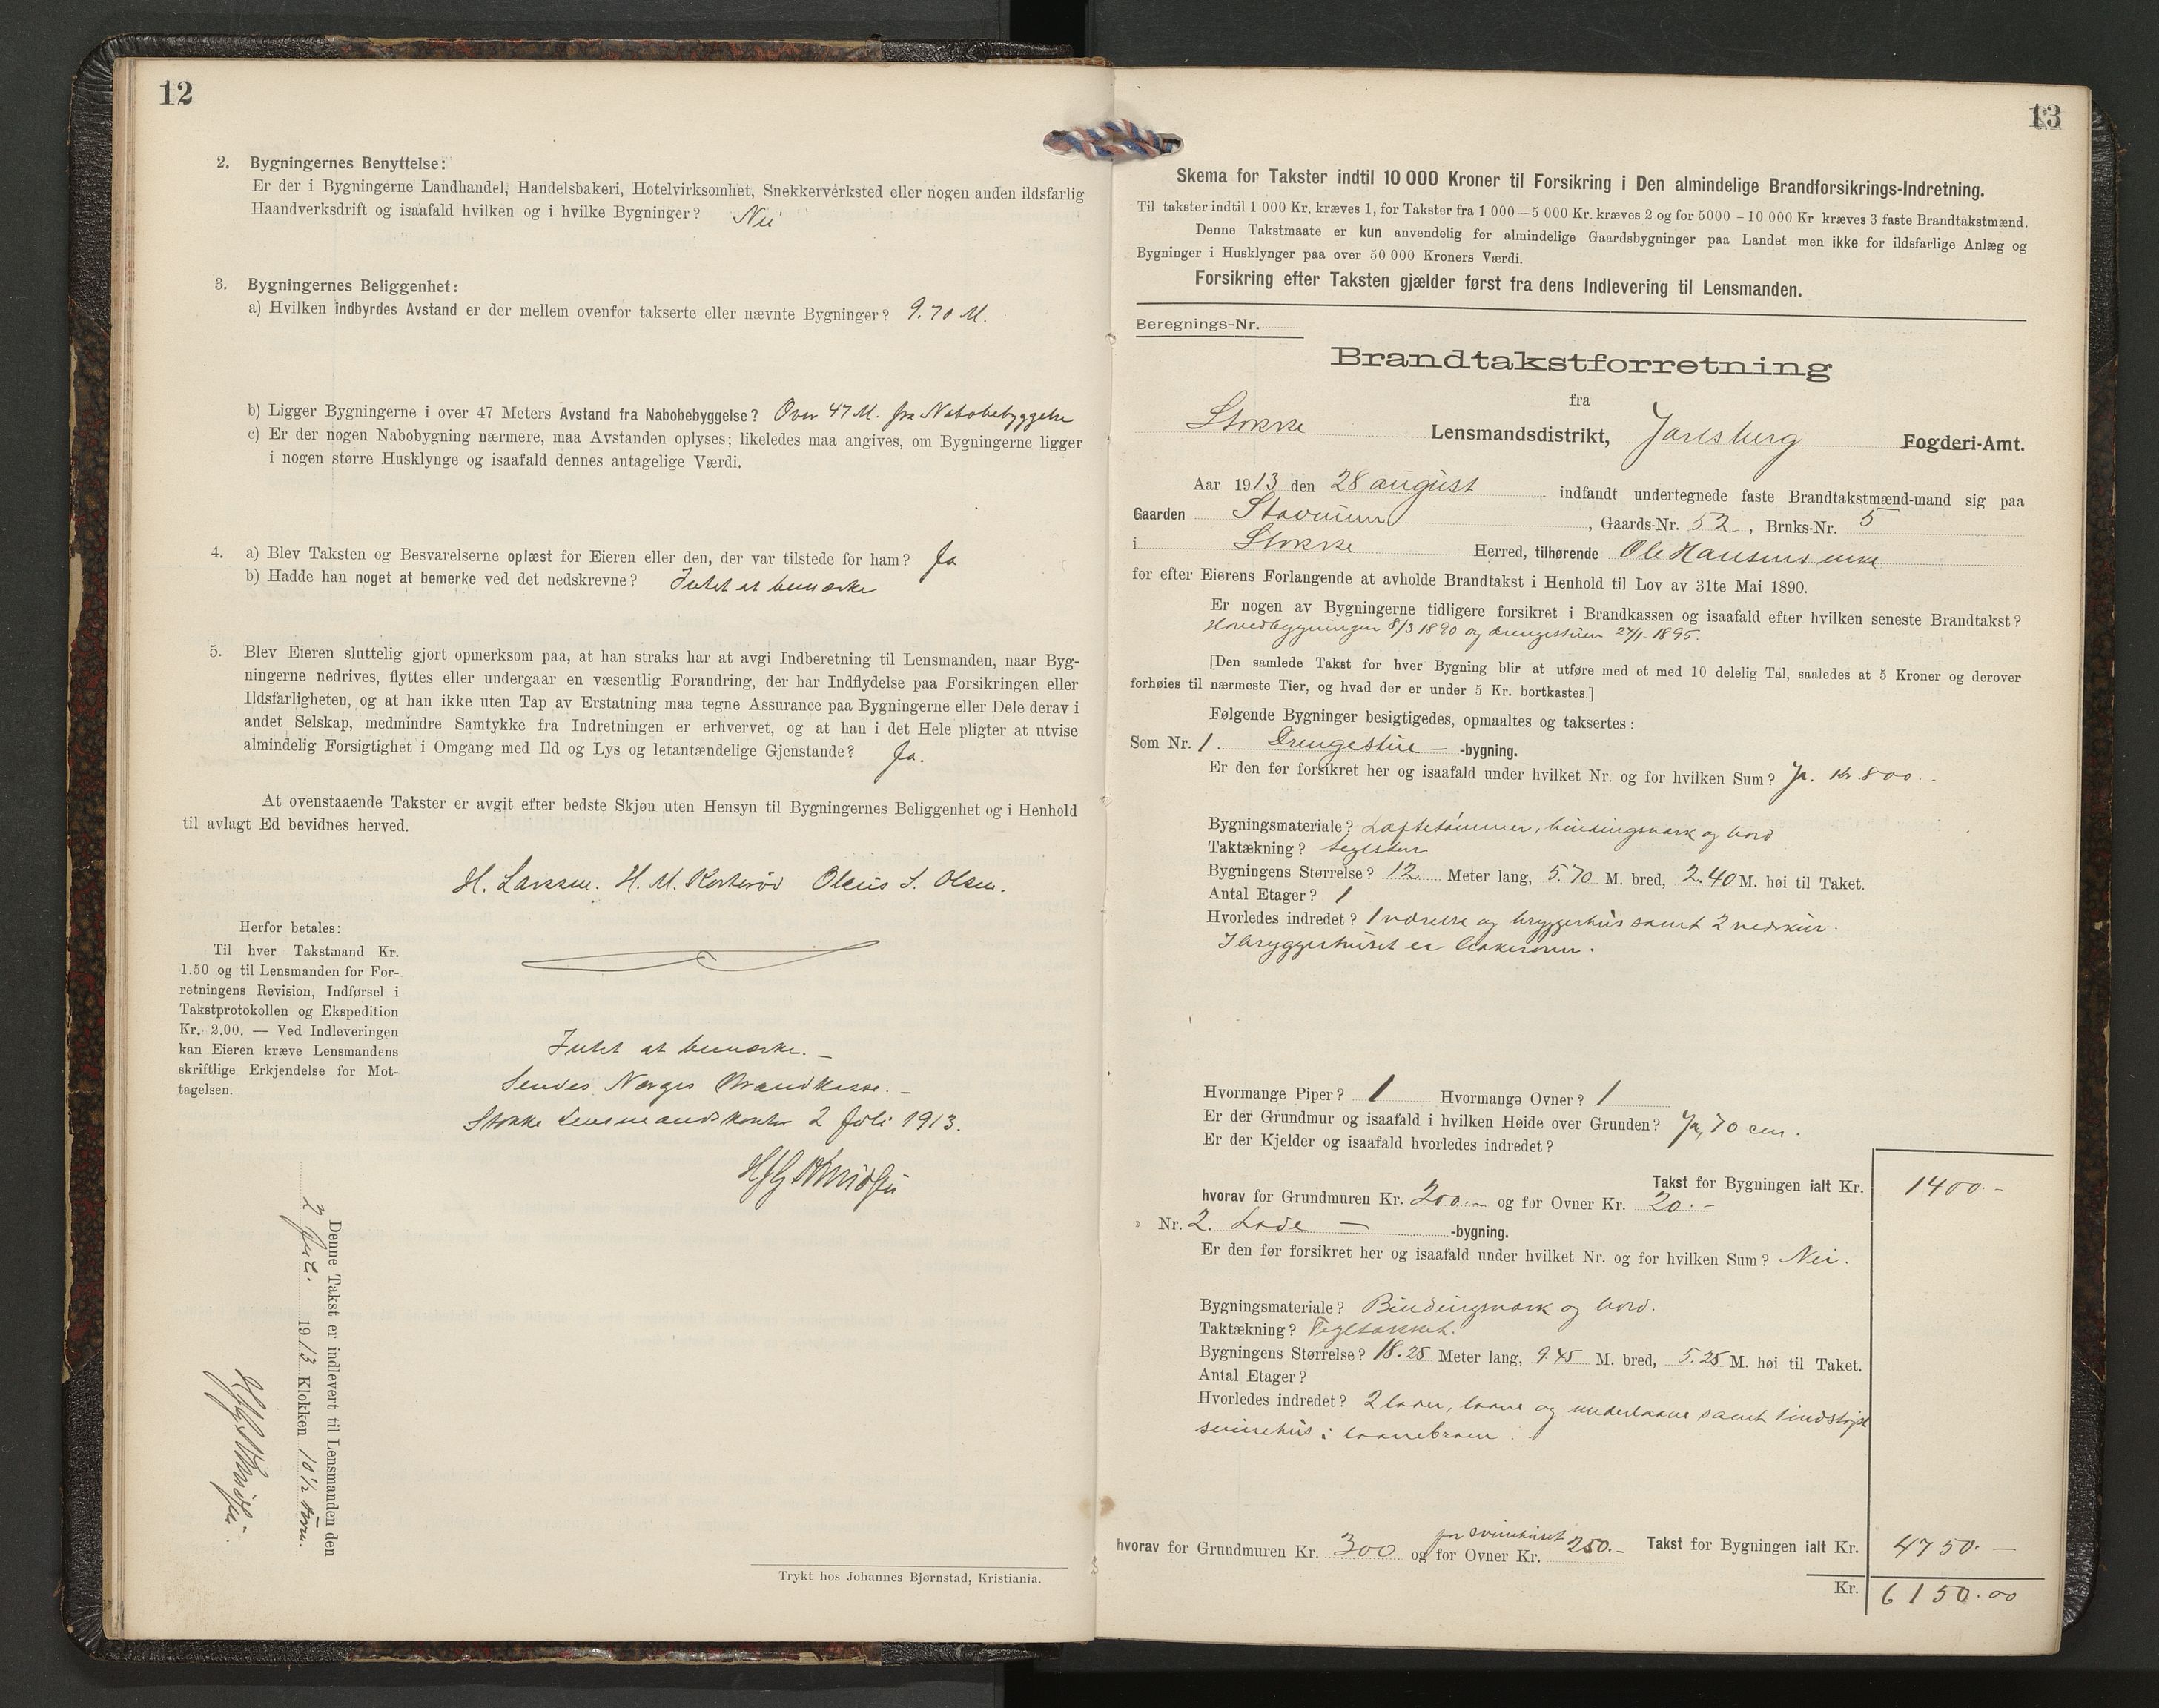 12
2. Bygningernes Benyttelse:
Er der i Bygningerne Landhandel, Handelsbakeri, Hotelvirksomhet, Snekkerverksted eller nogen anden ildsfarlig
Haandverksdrift og isaafald hvilken og i hvilke Bygninger? Nei
3. Bygningernes Beliggenhet:
a) Hvilken indbyrdes Avstand er der mellem ovenfor takserte eller nævnte Bygninger? 9.70 M.
b) Ligger Bygningerne i over 47 Meters Avstand fra Nabobebyggelse? Over 47 M. fra Nabobebyggelse
c) Er der nogen Nabobygning nærmere, maa Avstanden oplyses; likeledes maa angives, om Bygningerne ligger
i nogen større Husklynge og isaafald dennes antagelige Værdi.
4. a) Blev Taksten og Besvarelserne oplæst for Eieren eller den, der var tilstede for ham? Ja
b) Hadde han noget at bemerke ved det nedskrevne? Intet at bemærke
5. Blev Eieren sluttelig gjort opmerksom paa, at han straks har at avgi Indberetning til Lensmanden, naar Byg-
ningerne nedrives, flyttes eller undergaar en væsentlig Forandring, der har Indflydelse paa Forsikringen eller
Ildsfarligheten, og at han ikke uten Tap av Erstatning maa tegne Assurance paa Bygningerne eller Dele derav i
andet Selskap, medmindre Samtykke fra Indretningen er erhvervet, og at han i det Hele pligter at utvise
almindelig Forsigtighet i Omgang med Ild og Lys og letantændelige Gjenstande? Ja.
At ovenstaaende Takster er avgit efter bedste Skjøn uten Hensyn til Bygningernes Beliggenhet og i Henhold
til avlagt Ed bevidnes herved.
H. Larssen. H. M. Korterød Oleus S. Olsen.
Herfor betales:
Til hver Takstmand Kr.
1.50 og til Lensmanden for For-
retningens Revision, Indførsel i
Takstprotokollen og Ekspedition
Kr. 2.00. — Ved Indleveringen
kan Eieren kræve Lensmandens
skriftlige Erkjendelse for Mot-
tagelsen.
Intet at bemærke. —
Sendes Norges Brandkasse. —
Stokke Lensmandskontor 2 Juli 1913.
Denne Takst er indlevert til Lensmanden den
2 Juli. 1913 Klokken 10 1/2 Form.
Trykt hos Johannes Bjørnstad, Kristiania.
13
Skema for Takster indtil 10 000 Kroner til Forsikring i Den almindelige Brandforsikrings-Indretning.
Til takster indtil 1 000 Kr. kræves 1, for Takster fra 1 000—5 000 Kr. kræves 2 og for 5000 – 10 000 Kr kræves 3 faste Brandtakstmænd.
Denne Takstmaate er kun anvendelig for almindelige Gaardsbygninger paa Landet men ikke for ildsfarlige Anlæg og
Bygninger i Husklynger paa over 50 000 Kroners Værdi.
Forsikring efter Taksten gjælder først fra dens Indlevering til Lensmanden.
Beregnings-Nr.
Brandtakstforretning
fra
Stokke Lensmandsdistrikt, Jarlsberg Fogderi-Amt.
Aar 1913 den 28 august indfandt undertegnede faste Brandtakstmænd-mand sig paa
Gaarden Stavnum, Gaards-Nr. 52, Bruks-Nr. 5
i Stokke Herred, tilhørende Ole Hansens enke
for efter Eierens Forlangende at avholde Brandtakst i Henhold til Lov av 31te Mai 1890.
Er nogen av Bygningerne tidligere forsikret i Brandkassen og isaafald efter hvilken seneste Brandtakst?
Hovedbygningen 8/3 1890 og drengestuen 27/1. 1895.
[Den samlede Takst for hver Bygning blir at utføre med et med 10 delelig Tal, saaledes at 5 Kroner og derover
forhøies til nærmeste Tier, og hvad der er under 5 Kr. bortkastes.]
Følgende Bygninger besigtigedes, opmaaltes og taksertes:
Som Nr. 1. Drengestue — -bygning.
Er den før forsikret her og isaafald under hvilket Nr. og for hvilken Sum? Ja. Kr 800..
Bygningsmateriale? Laftetømmer, bindingsværk og bord
Taktækning? teglsten
Bygningens Størrelse? 12 Meter lang, 5.70 M. bred, 2.40 M. høi til Taket.
Antal Etager? 1
Hvorledes indredet? 1 værelse og bryggerhus samt 2 vedskur.
I bryggerhuset er bakerovn.
Hvormange Piper? 1 Hvormange Ovner? 1
Er der Grundmur og isaafald i hvilken Høide over Grunden? Ja, 70 cm.
Er der Kjelder og isaafald hvorledes indredet?
Takst for Bygningen ialt Kr. 1400.-
hvorav for Grundmuren Kr. 200.- og for Ovner Kr. 20.-
» Nr. 2. Lade — -bygning.
Er den før forsikret her og isaafald under hvilket Nr. og for hvilken Sum? Nei.
Bygningsmateriale? Bindingsværk og bord.
Taktækning? Tegltækket.
Bygningens Størrelse? 18.25 Meter lang, 9.45 M. bred, 5.25 M. høi til Taket.
Antal Etager?
Hvorledes indredet? 2 lader, laave og underlaave samt
svinehus i laavebroen.
for svinehuset
hvorav for Grundmuren Kr. 300 og for Ovner Kr. 250.- Takst for Bygningen ialt Kr. 4750.-
Kr. 6150.00